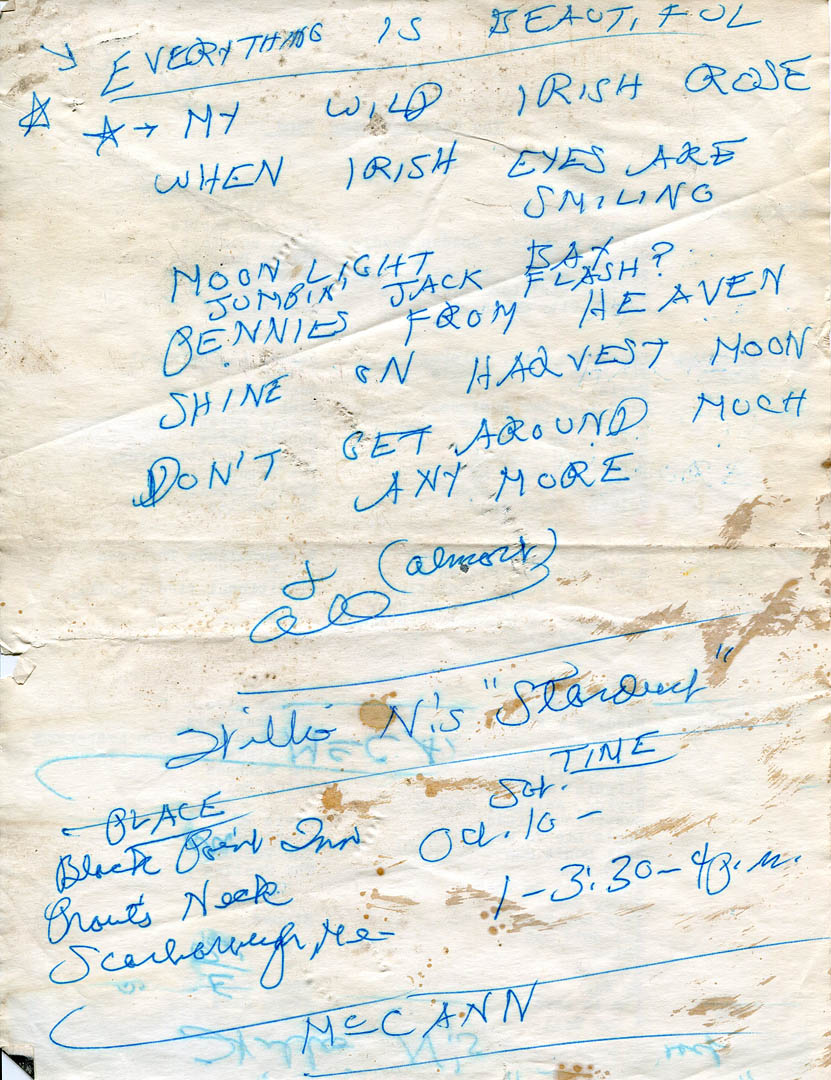 EVERYTHING IS BEAUTIFUL
MY WILD IRISH ROSE
WHEN IRISH EYES ARE
SMILING
MOON LIGHT BAY
JUMPIN' JACK FLASH?
PENNIES FROM HEAVEN
SHINE ON HARVEST MOON
DON'T GET AROUND MUCH
ANY MORE
(almost)
all
Willie N's "Stardust"
PLACE
Black Point Inn
Prouts Neck
Scarborough, Me-
TIME
Sat.
Oct. 10 -
1 - 3:30 - 4 p.m.
McCANN